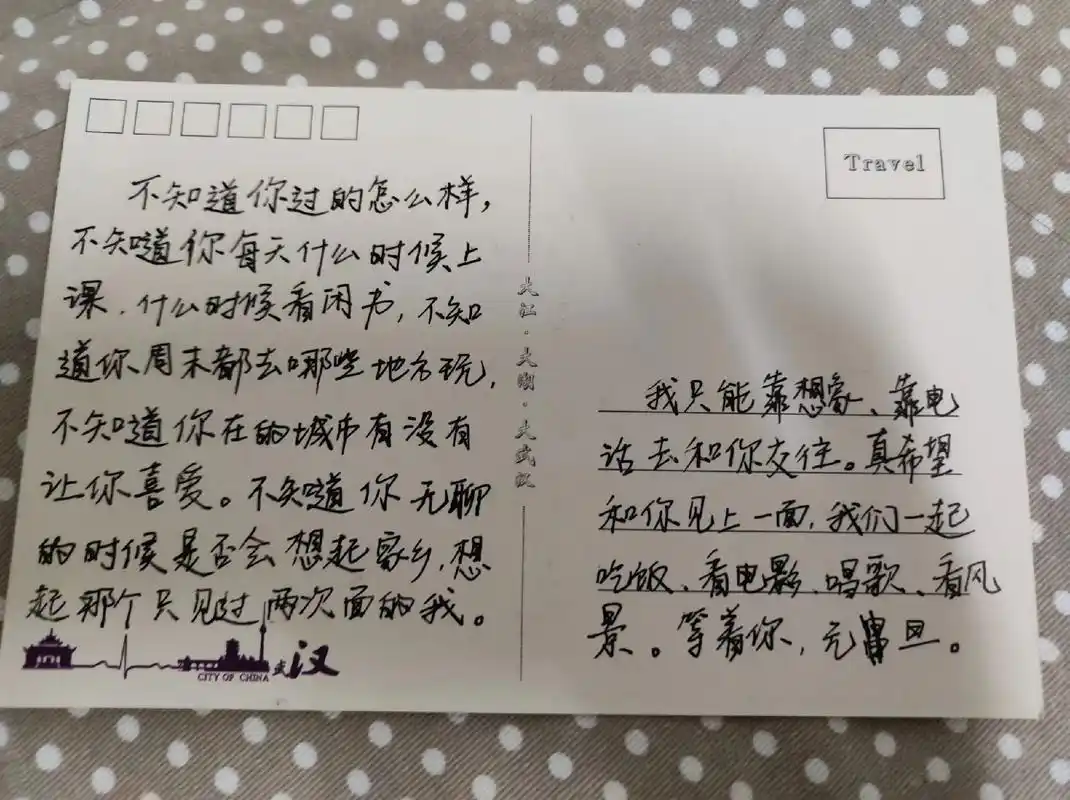 不知道你过的怎么样，
不知道你每天什么时候上
课，什么时候看闲书，不知
道你周末都去哪些地方玩，
不知道你在的城市有没有
让你喜爱。不知道你无聊
的时候是否会想起家乡，想
起那个只见过两次面的我。
武汉
CITY OF CHINA
大江·大湖·大武汉
Travel
我只能靠想象、靠电
话去和你交往。真希望
和你见上一面，我们一起
吃饭、看电影、唱歌、看风
景。等着你，元旦。